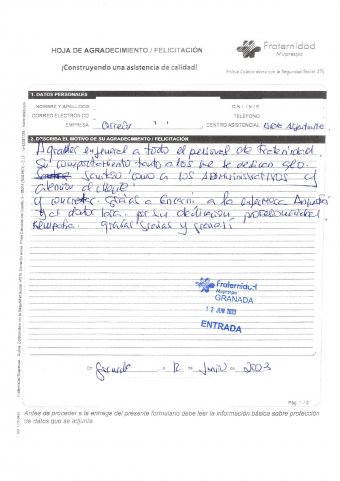 HOJA DE AGRADECIMIENTO / FELICITACIÓN
Fraternidad
Muprespa
¡Construyendo una asistencia de calidad!
Mutua Colaboradora con la Seguridad Social, 275
1. DATOS PERSONALES
NOMBRE Y APELLIDOS
D N I / N I E
CORREO ELECTRÓNICO
TELÉFONO
EMPRESA Correos
CENTRO ASISTENCIAL
2. DESCRIBA EL MOTIVO DE SU AGRADECIMIENTO / FELICITACIÓN
Agradecer en general a todo el personal de Fraternidad,
Su comportamiento tanto a los que se dedican
Sanitario como a los ADMINISTRATIVOS y
atención al cliente
y concretar Gracias a a la enfermera
y al doctor por su dedicación, profesionalidad
gracias Gracias y gracias
Fraternidad
Muprespa
GRANADA
12 JUN 2023
ENTRADA
En Granada 12 de Junio de 2003
Pág. 1 / 2
Antes de proceder a la entrega del presente formulario debe leer la información básica sobre protección
de datos que se adjunta.